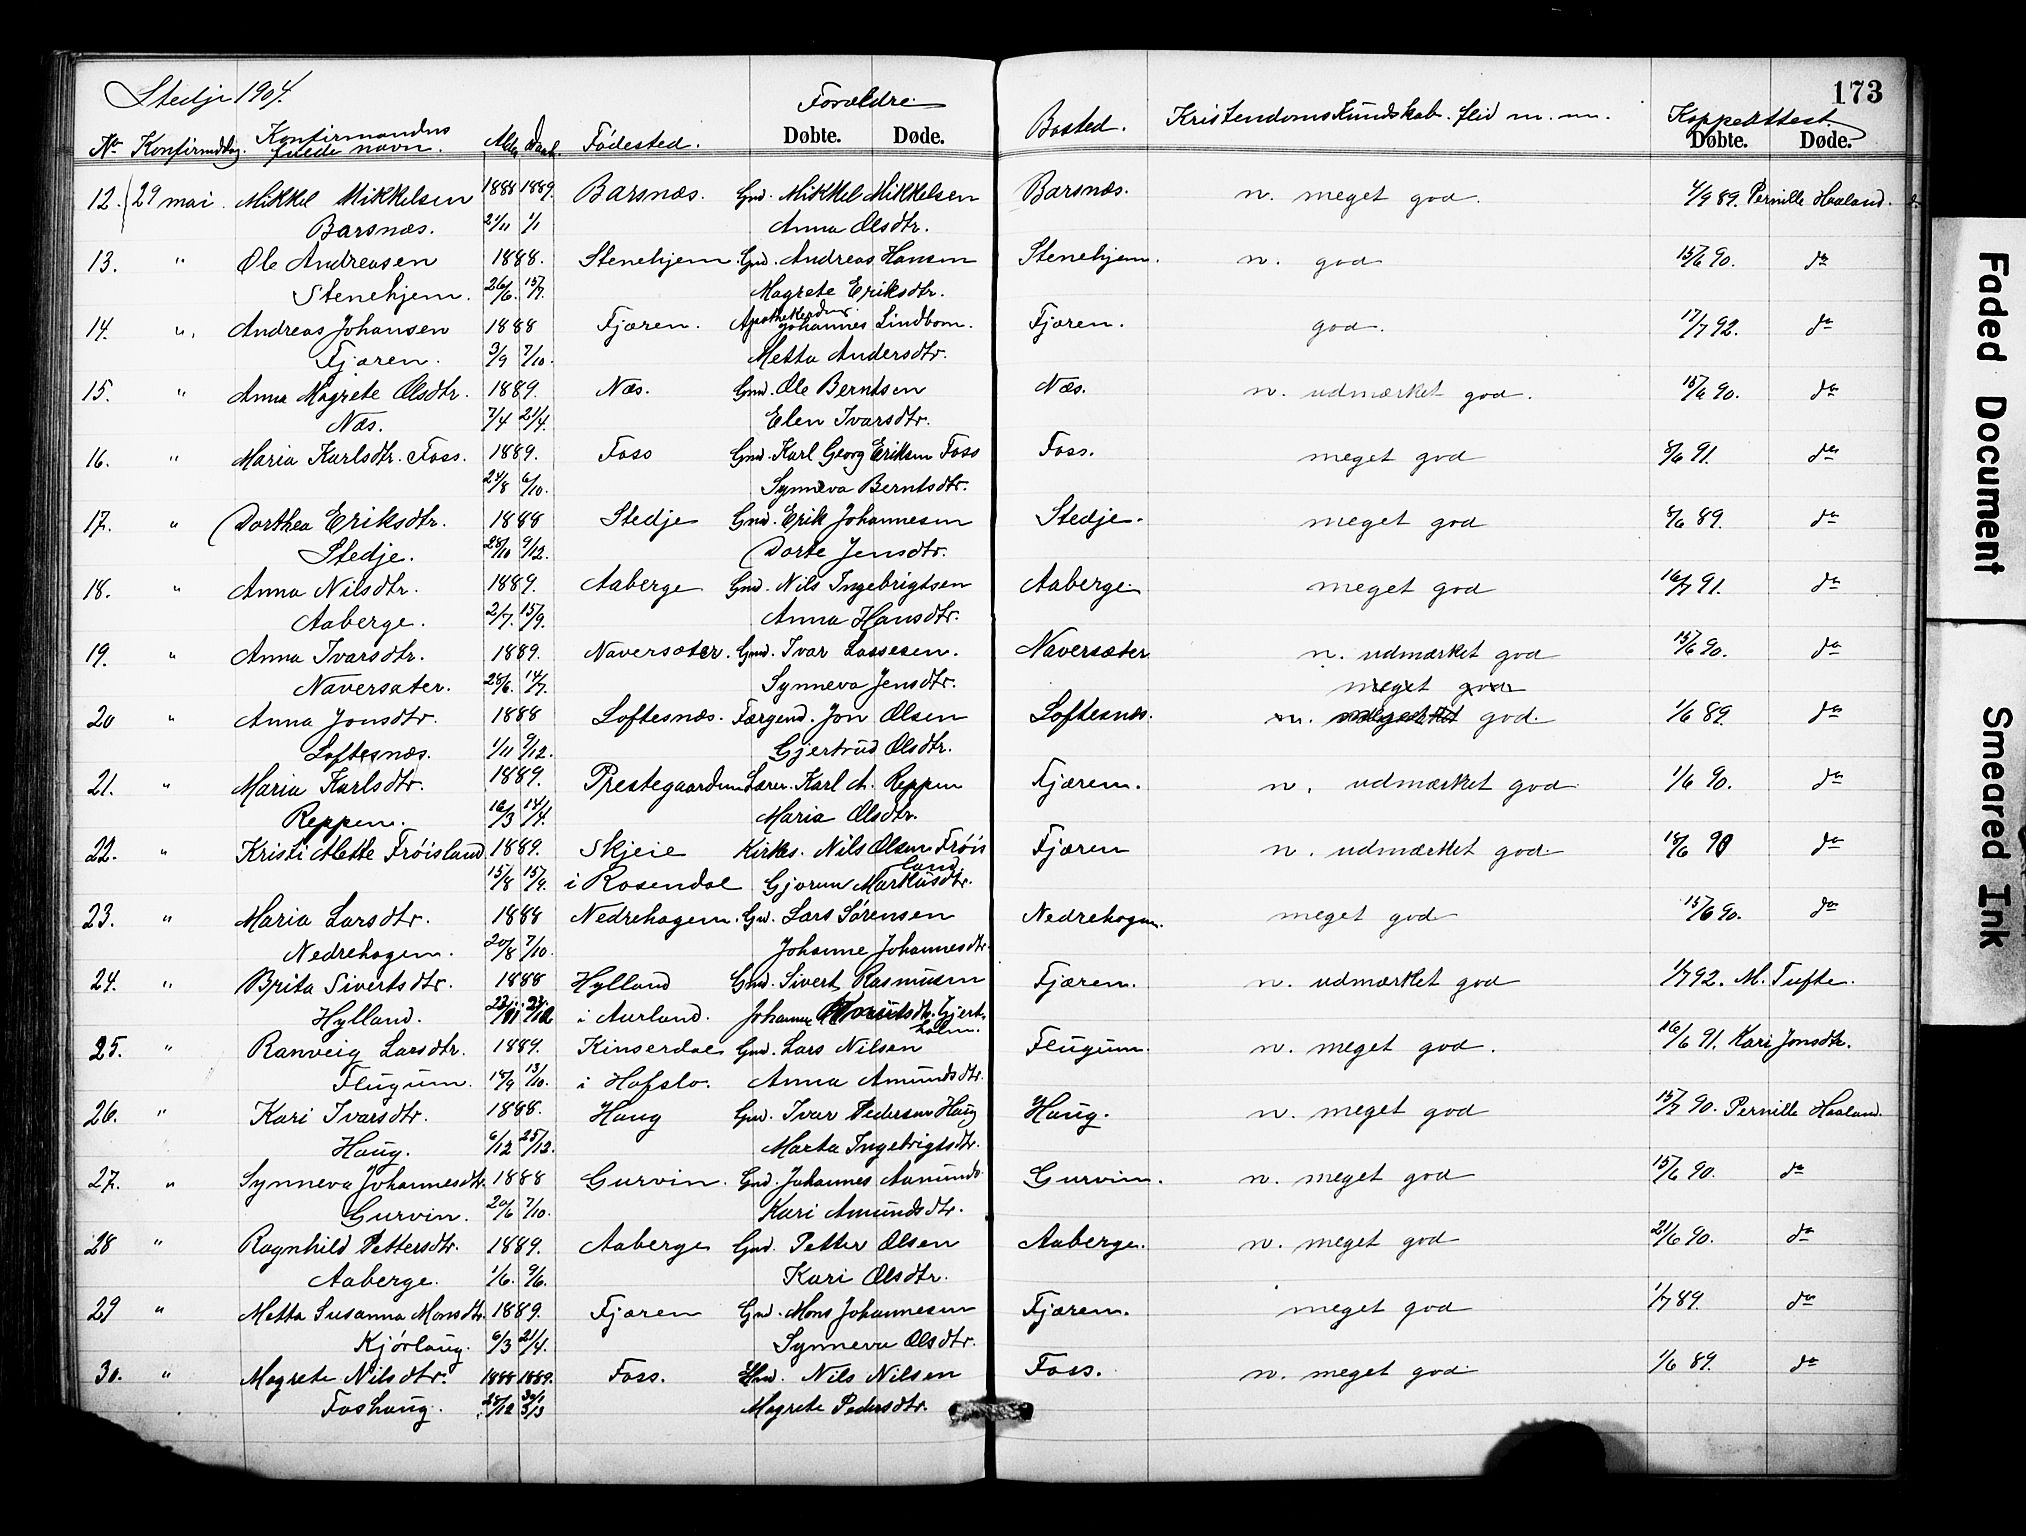 Stedje 1904.
173
Forældre
No Konfirmddag. Konfirmandens fulde navn. Alder Daab. Fødested. Døbte. Døde. Bosted. Kristendomskundskab. flid m. m. Koppeattest Døbte. Døde.
12. 29 mai. Mikkel Mikkelsen 1888 1889. Barsnæs. Gmd. Mikkel Mikkelsen Barsnæs. n. meget god. 4/9 89. Pernille Haaland.
Barsnæs. 21/11 1/1 Anna Olsdtr.
13. " Ole Andreasen 1888. Stenehjem. Gmd. Andreas Hansen Stenehjem. n. god 15/6 90. do
Stenehjem. 26/6. 15/7. Magrete Eriksdtr.
14. " Andreas Johansen 1888 Fjæren. Johannes Lindbom. Fjæren. god. 17/7 92. do
Fjæren. 3/9 7/10. Metta Andersdtr.
15. " Anna Magrete Olsdtr. 1889. Næs. Gmd. Ole Berntsen Næs. n. udmærket god. 15/6 90. do
Næs. 7/4 21/4. Elen Ivarsdtr.
16. " Maria Karlsdtr. Foss. 1889. Foss Gmd. Karl Georg Eriksen Foss Foss. meget god 8/6 91. do
24/8 6/10. Synneva Berntsdtr.
17. " Dorthea Eriksdtr. 1888 Stedje Gmd. Erik Johannesen Stedje. meget god 8/6 89. do
Stedje. 28/10 9/12. Dorte Jensdtr.
18. " Anna Nilsdtr. 1889. Aaberge Gmd. Nils Ingebrigtsen Aaberge. meget god 16/7 91. do
Aaberge. 2/7. 15/9. Anna Hansdtr.
19. " Anna Ivarsdtr. 1889. Naversæter. Gmd. Ivar Lassesen. Naversæter n. udmærket god 15/6 90. do
Naversæter. 28/6. 14/7. Synneva Jensdtr. meget god
20 " Anna Jonsdtr. 1888 Loftesnæs. Færgemd. Jon Olsen Loftesnæs. n. god. 1/6 89. do
Loftesnæs. 1/11 9/12. Gjertrud Olsdtr.
21. " Maria Karlsdtr. 1889. Prestegaarden Lærer. Karl A. Reppen Fjæren. n. udmærket god 1/6 90. do
Reppen. 16/3 14/4. Maria Olsdtr.
22. " Kristi Mette Frøisland 1889. Skjeie Kirkes. Nils Olsen Frøis Fjæren n. udmærket god 18/6 90 do
land.
15/8 15/9. i Rosendal Gjorun Markusdtr.
23. " Maria Larsdtr. 1888 Nedrehagen. Gmd. Lars Sørensen Nedrehagen. meget god 15/6 90. do
Nedrehagen. 20/8 7/10. Johanne Johannesdtr.
24. " Brita Sivertsdtr. 1888 Hylland Gmd. Sivert Rasmusen Fjæren. n. udmærket god 1/7 92. M. Tufte.
Hylland. i Aurland. Johanne Gjert-
holm.
25. " Ranveig Larsdtr. 1889. Kinserdal Gmd. Lars Nilsen Flugum. n. meget god. 16/6 91. Kari Jonsdtr.
Flugum. 18/9 13/10. i Hafslo. Anna Amundsdtr.
26. " Kari Ivarsdtr. 1888. Haug Gmd. Ivar Pedersen Haug Haug. n. meget god 15/7 90. Pernille Haaland.
Haug. 6/12 25/12. Marta Ingebrigtsdtr.
27. " Synneva Johannesdtr. 1888 Gurvin. Gmd. Johannes Aamunds Gurvin. n. meget god 15/6 90. do
Gurvin. 20/6 7/10. Kari Amundsdtr.
28 " Ragnhild Pettersdtr. 1889. Aaberge Gmd. Petter Olsen Aaberge. n. meget god 21/6 90. do
Aaberge. 1/6. 9/6. Kari Olsdtr.
29 " Metta Susanna Monsdtr. 1889. Fjæren Gmd. Mons Johannesen Fjæren. meget god 1/7 89. do
Kjørlaug. 6/3 21/4. Synneva Olsdtr.
30. " Magrete Nilsdtr. 1888 1889. Foss. Hmd. Nils Nilsen Foss. n. meget god 1/6 89. do
Foshaug. Magrete Pedersdtr.
Faded Document
Smeared Ink